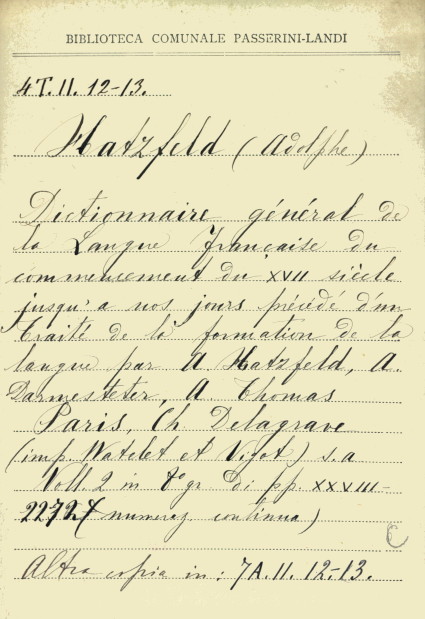 BIBLIOTECA COMUNALE PASSERINI-LANDI
4T.II. 12-13.
Hatzfeld (Adolphe)
Dictionnaire général de
la Langue française du
commencement du XVII siècle
jusqu'a nos jours précédé d'un
traité de la formation de la
langue par A Hatzfeld, A.
Darmesteter, A. Thomas
Paris, Ch. Delagrave
(imp. Watelet et Vigot) s.a
Voll. 2 in 4º gr di pp. XXVIII-
2272 (numeraz. continua)
C
Altra copia in: 7A.II. 12-13.